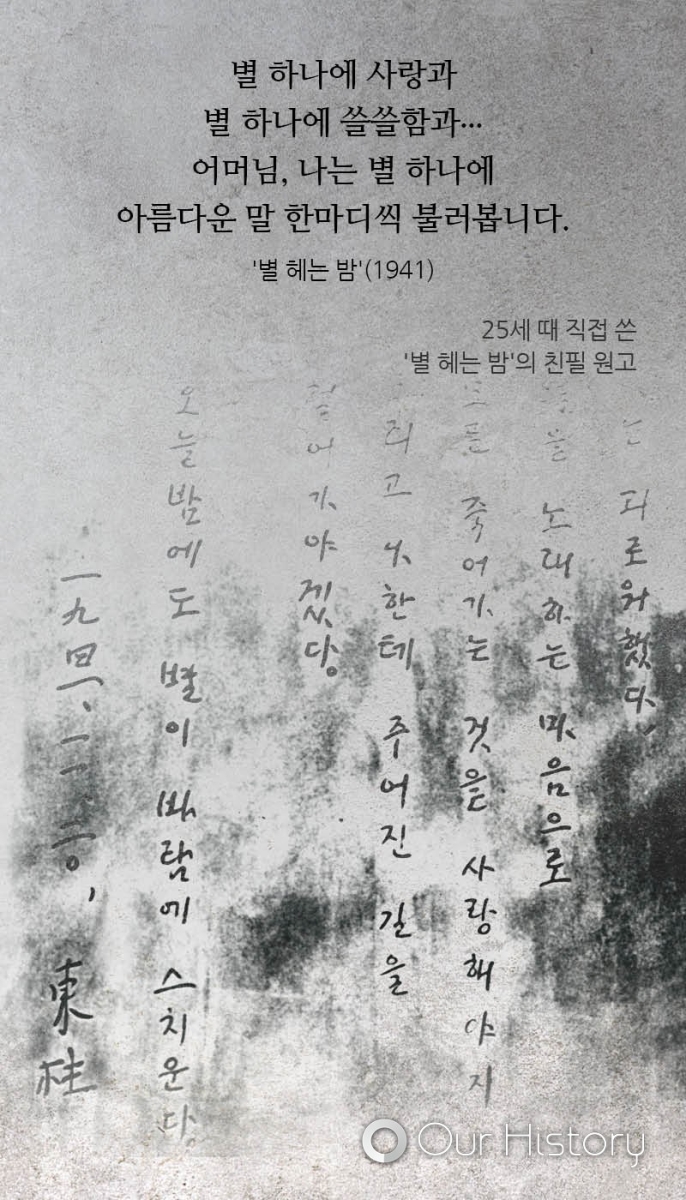 별 하나에 사랑과
별 하나에 쓸쓸함과…
어머님, 나는 별 하나에
아름다운 말 한마디씩 불러봅니다.
'별 헤는 밤'(1941)
25세 때 직접 쓴
'별 헤는 밤'의 친필 원고
는 괴로워했다.
을 노래하는 마음으로
든 죽어가는 것을 사랑해야지
그리고 나한테 주어진 길을
걸어가야겠다.
오늘밤에도 별이 바람에 스치운다.
一九四一、一一、二〇,
東柱
Our History